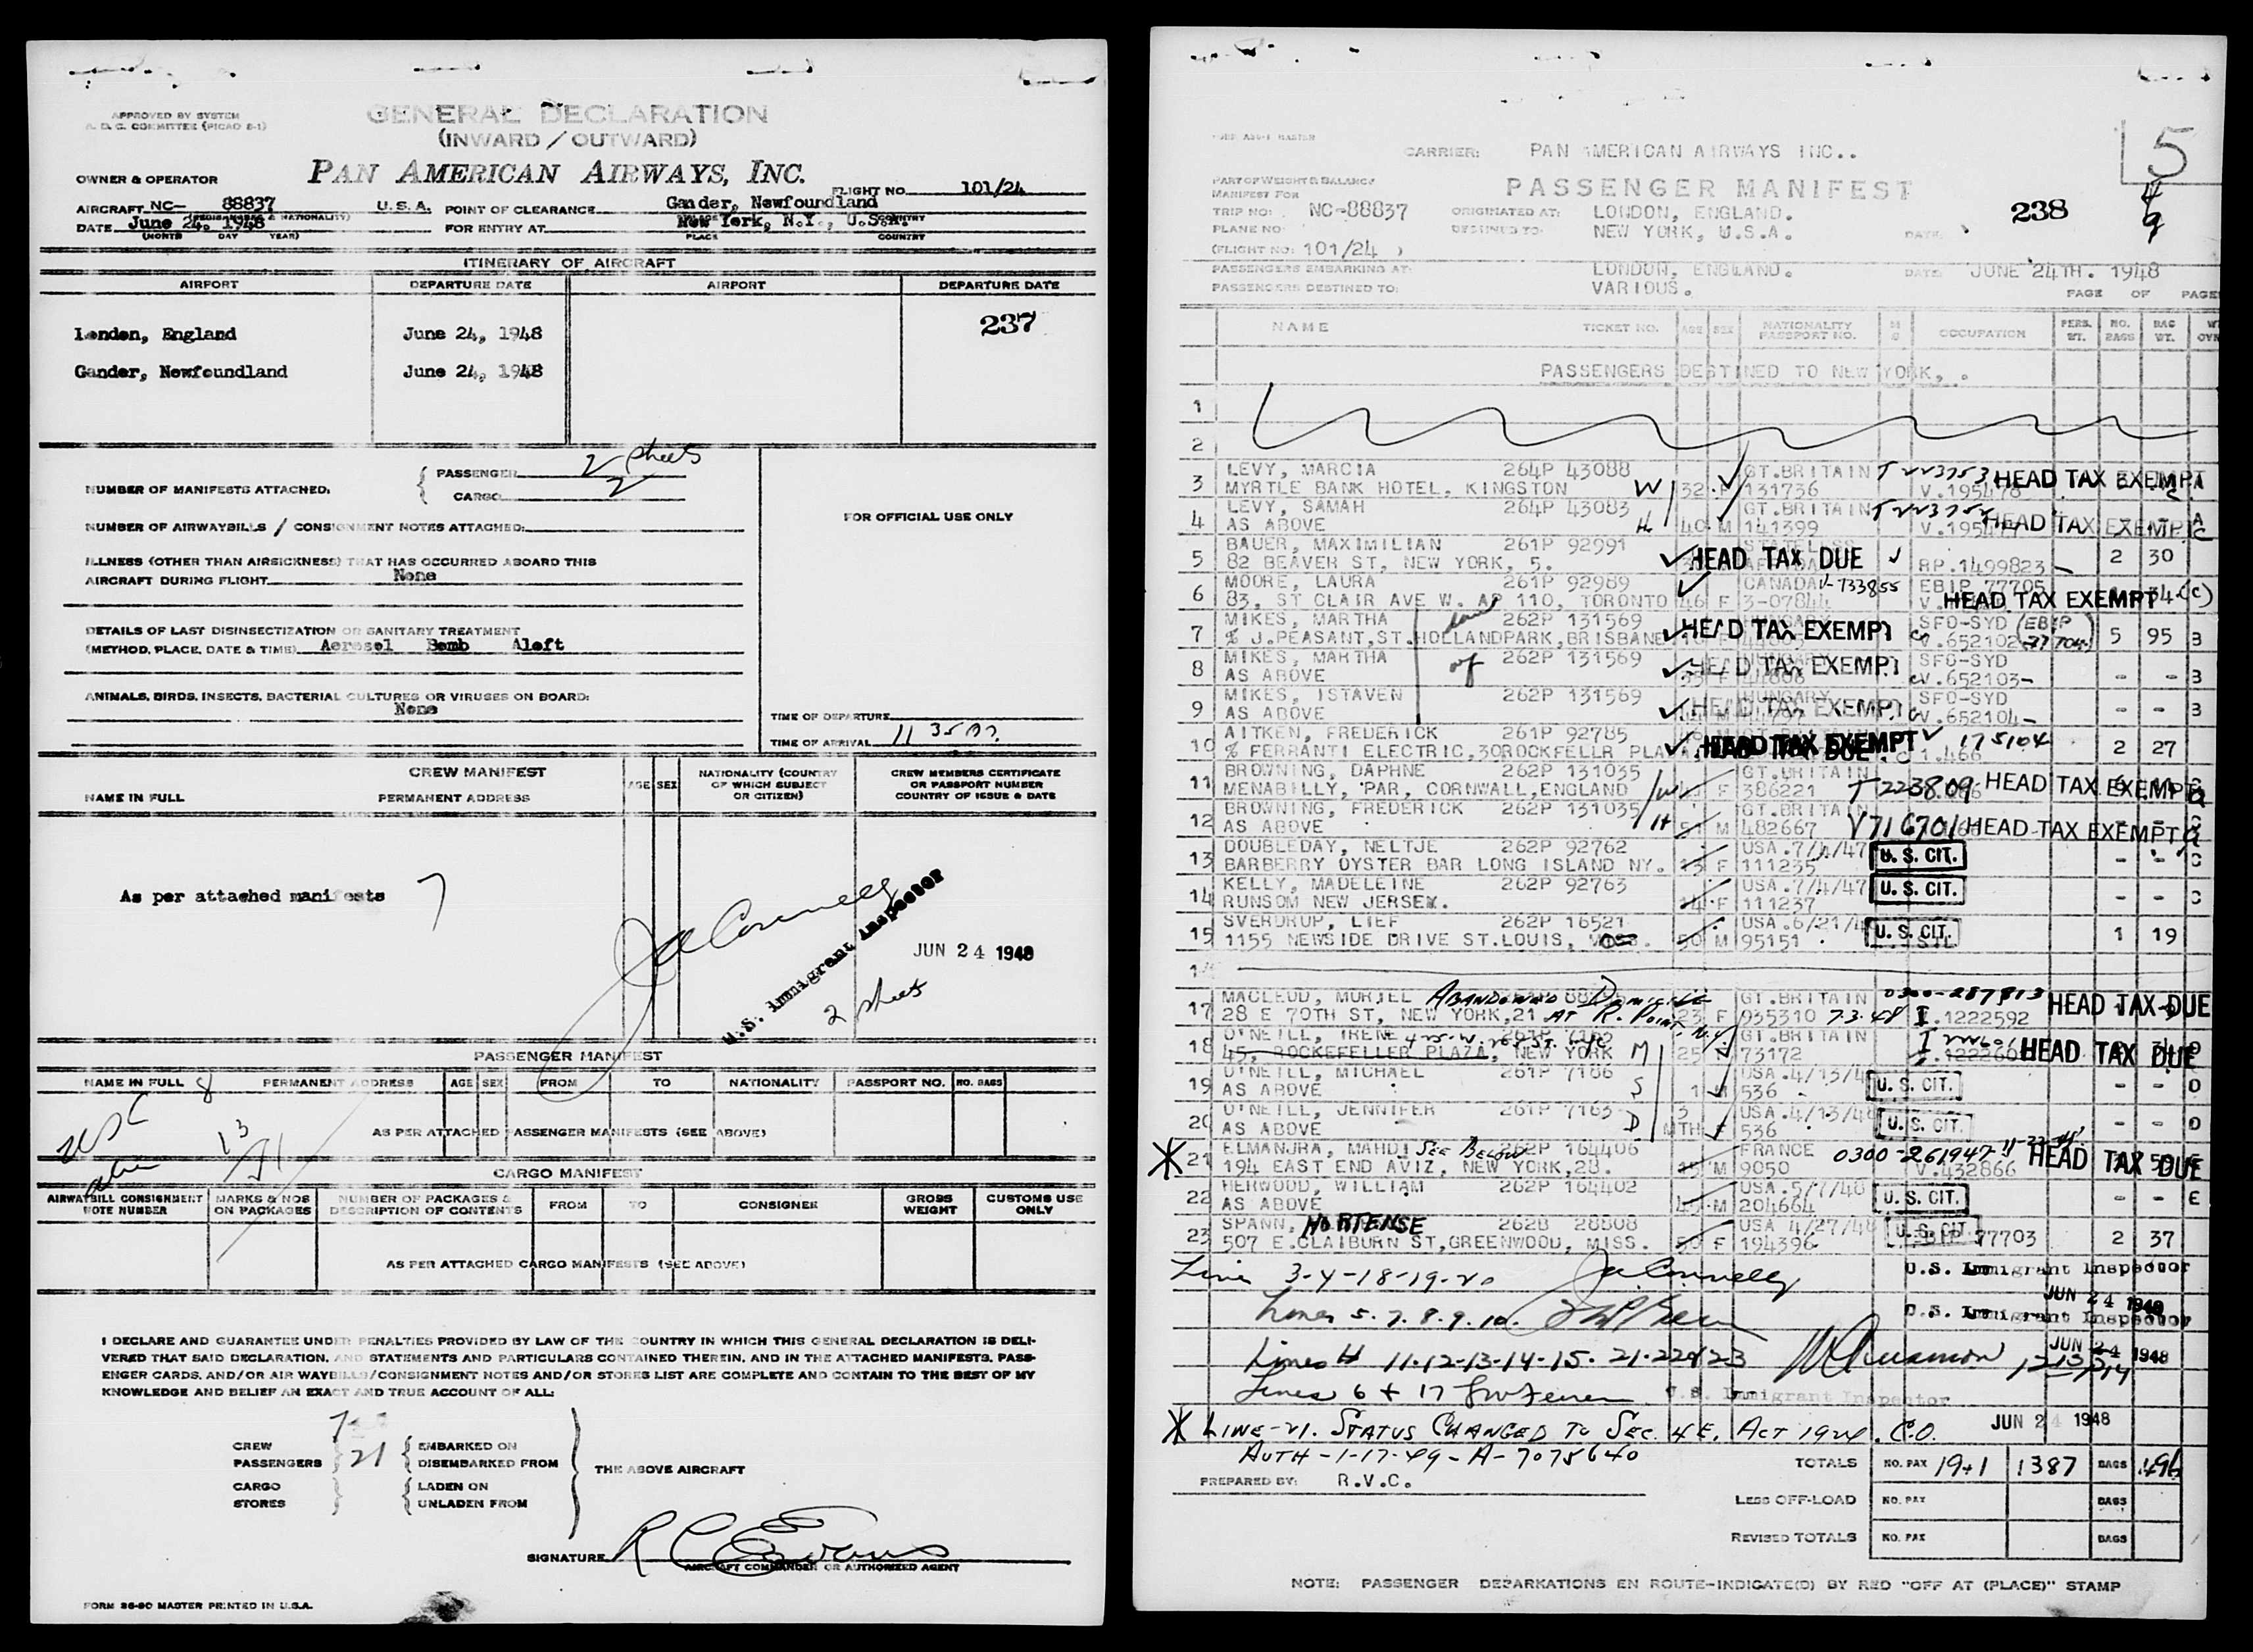 APPROVED BY SYSTEM
A. D. C. COMMITTEE (PICAO E-1)
GENERAL DECLARATION
(INWARD / OUTWARD)
OWNER & OPERATOR PAN AMERICAN AIRWAYS, INC.
FLIGHT NO. 101/24
AIRCRAFT NC- 88837 U.S.A. POINT OF CLEARANCE Gander, Newfoundland
(REGISTRATION & NATIONALITY) PLACE COUNTRY
DATE June 24, 1948 FOR ENTRY AT New York, N.Y., U.S.A.
(MONTH DAY YEAR) PLACE COUNTRY
ITINERARY OF AIRCRAFT
AIRPORT DEPARTURE DATE AIRPORT DEPARTURE DATE
237
London, England June 24, 1948
Gander, Newfoundland June 24, 1948
NUMBER OF MANIFESTS ATTACHED: PASSENGER 2 sheets
CARGO 2
NUMBER OF AIRWAYBILLS / CONSIGNMENT NOTES ATTACHED:
FOR OFFICIAL USE ONLY
ILLNESS (OTHER THAN AIRSICKNESS) THAT HAS OCCURRED ABOARD THIS
AIRCRAFT DURING FLIGHT None
DETAILS OF LAST DISINSECTIZATION OR SANITARY TREATMENT
(METHOD, PLACE, DATE & TIME) Aerosol Bomb Aloft
ANIMALS, BIRDS, INSECTS, BACTERIAL CULTURES OR VIRUSES ON BOARD:
None
TIME OF DEPARTURE
TIME OF ARRIVAL 11 35
CREW MANIFEST
NAME IN FULL PERMANENT ADDRESS AGE SEX NATIONALITY (COUNTRY OF WHICH SUBJECT OR CITIZEN) CREW MEMBERS CERTIFICATE OR PASSPORT NUMBER COUNTRY OF ISSUE & DATE
As per attached manifests 7
U.S. Immigrant Inspector
JUN 24 1948
2 sheets
PASSENGER MANIFEST
NAME IN FULL 8 PERMANENT ADDRESS AGE SEX FROM TO NATIONALITY PASSPORT NO. NO. BAGS
USC
alien 13
21
AS PER ATTACHED PASSENGER MANIFESTS (SEE ABOVE)
CARGO MANIFEST
AIRWAYBILL CONSIGNMENT NOTE NUMBER MARKS & NOS ON PACKAGES NUMBER OF PACKAGES & DESCRIPTION OF CONTENTS FROM TO CONSIGNEE GROSS WEIGHT CUSTOMS USE ONLY
AS PER ATTACHED CARGO MANIFESTS (SEE ABOVE)
I DECLARE AND GUARANTEE UNDER PENALTIES PROVIDED BY LAW OF THE COUNTRY IN WHICH THIS GENERAL DECLARATION IS DELI-
VERED THAT SAID DECLARATION, AND STATEMENTS AND PARTICULARS CONTAINED THEREIN, AND IN THE ATTACHED MANIFESTS, PASS-
ENGER CARDS, AND/OR AIR WAYBILLS/CONSIGNMENT NOTES AND/OR STORES LIST ARE COMPLETE AND CONTAIN TO THE BEST OF MY
KNOWLEDGE AND BELIEF AN EXACT AND TRUE ACCOUNT OF ALL:
7
CREW EMBARKED ON
PASSENGERS 21 DISEMBARKED FROM
THE ABOVE AIRCRAFT
CARGO LADEN ON
STORES UNLADEN FROM
SIGNATURE R C Evans
AIRCRAFT COMMANDER OR AUTHORIZED AGENT
FORM 86-90 MASTER PRINTED IN U.S.A.
5
CARRIER: PAN AMERICAN AIRWAYS INC..
PART OF WEIGHT & BALANCE
MANIFEST FOR
PASSENGER MANIFEST
TRIP NO: NC-88837 ORIGINATED AT: LONDON, ENGLAND. 238
PLANE NO: DESTINED TO: NEW YORK, U.S.A. DATE:
(FLIGHT NO: 101/24 )
PASSENGERS EMBARKING AT: LONDON, ENGLAND. DATE: JUNE 24TH. 1948
PASSENGERS DESTINED TO: VARIOUS. PAGE OF PAGE
NAME TICKET NO. AGE SEX NATIONALITY PASSPORT NO. M S OCCUPATION PERS. WT. NO. BAGS BAG WT.
PASSENGERS DESTINED TO NEW YORK, .
1
2
3 LEVY, MARCIA 264P 43088 GT.BRITAIN HEAD TAX EXEMPT
MYRTLE BANK HOTEL, KINGSTON W 32 F 131736 V.195478
4 LEVY, SAMAH 264P 43083 GT.BRITAIN HEAD TAX EXEMPT
AS ABOVE H 40 M 141399
5 BAUER, MAXIMILIAN 261P 92991 HEAD TAX DUE 2 30
82 BEAVER ST, NEW YORK, 5. RP.1499823
6 MOORE, LAURA 261P 92989 CANADA V-733855 EBIP 77705
83, ST CLAIR AVE W. AP 110, TORONTO 46 F 3-07844 HEAD TAX EXEMPT (C)
7 MIKES, MARTHA 262P 131569 HEAD TAX EXEMPT SFO-SYD (EBIP
% J.PEASANT,ST.HOLLANDPARK,BRISBANE V.652102 77704) 5 95 B
8 MIKES, MARTHA 262P 131569 HEAD TAX EXEMPT SFO-SYD
AS ABOVE V.652103 - - B
9 MIKES, ISTAVEN 262P 131569 HUNGARY HEAD TAX EXEMPT SFO-SYD
AS ABOVE V.652104 - - B
10 AITKEN, FREDERICK 261P 92785 HEAD TAX EXEMPT 175104
% FERRANTI ELECTRIC,30ROCKFELLR PLA 1.466 2 27
11 BROWNING, DAPHNE 262P 131035 GT.BRITAIN
MENABILLY, PAR, CORNWALL,ENGLAND W F 386221 T 223809 HEAD TAX EXEMPT
12 BROWNING, FREDERICK 262P 131035 GT.BRITAIN
AS ABOVE H 51 M 482667 V716701 HEAD TAX EXEMPT
13 DOUBLEDAY, NELTJE 262P 92762 USA.7/4/47 U. S. CIT.
BARBERRY OYSTER BAR LONG ISLAND NY. 13 F 111235 - - C
14 KELLY, MADELEINE 262P 92763 USA.7/4/47 U. S. CIT.
RUNSOM NEW JERSEY. 14 F 111237 - - C
15 SVERDRUP, LIEF 262P 16521 USA.6/21/4 U. S. CIT.
1155 NEWSIDE DRIVE ST.LOUIS, 50 M 95151 1 19
17 MACLEOD, MURIEL ABANDONED DOMICILE GT.BRITAIN 0300-287813 HEAD TAX DUE
28 E 70TH ST, NEW YORK,21 AT R. POINT, N.Y. 23 F 935310 7-3-48 I.1222592
18 O'NEILL, IRENE GT.BRITAIN
45, ROCKEFELLER PLAZA, NEW YORK M 25 73172 HEAD TAX DUE
19 O'NEILL, MICHAEL 261P 7166 USA.4/13/4 U. S. CIT.
AS ABOVE S 1 M 536 - - D
20 O'NEILL, JENNIFER 261P 7163 3 USA.4/13/48 U. S. CIT.
AS ABOVE D MTH F 536 - - D
21 ELMANJRA, MAHDI SEE BELOW 262P 164406 FRANCE 0300-261947 HEAD TAX DUE
194 EAST END AVIZ, NEW YORK,28. 15 M 9050 V.432866
22 HERWOOD, WILLIAM 262P 164402 USA.5/7/48 U. S. CIT.
AS ABOVE M 204664 - - E
23 SPANN, HORTENSE 262B 28808 USA 4/27/48 U. S. CIT.
507 E.CLAIBURN ST,GREENWOOD, MISS. 50 F 194396 77703 2 37
Line 3-4-18-19-20 U.S. Immigrant Inspector
JUN 24 1948
Lines 5.7.8.9.10. U.S. Immigrant Inspector
JUN 24 1948
Lines # 11-12-13-14-15. 21-22&23
Lines 6 + 17 U.S. Immigrant Inspector
JUN 24 1948
* LINE-21. STATUS CHANGED TO SEC. 4 E. ACT 1924. C.O.
AUTH-1-17-49-A-7075640
TOTALS NO. PAX 19+1 1387 BAGS 496
PREPARED BY: R.V.C.
LESS OFF-LOAD NO. PAX BAGS
REVISED TOTALS NO. PAX BAGS
NOTE: PASSENGER DEBARKATIONS EN ROUTE-INDICATE(D) BY RED "OFF AT (PLACE)" STAMP